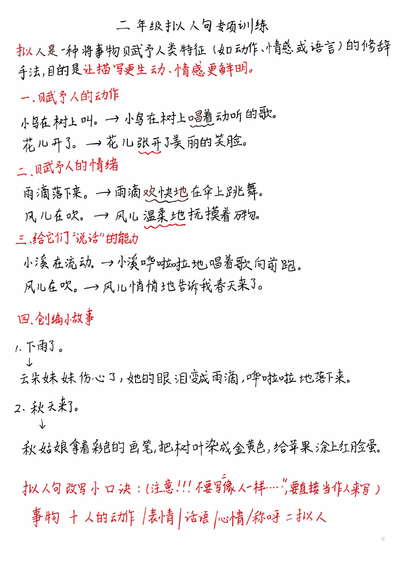 二年级拟人句专项训练
拟人是一种将事物赋予人类特征（如动作、情感或语言）的修辞
手法，目的是让描写更生动、情感更鲜明。
一、赋予人的动作
小鸟在树上叫。→小鸟在树上唱着动听的歌。
花儿开了。→花儿张开了美丽的笑脸。
二、赋予人的情绪
雨滴落下来。→雨滴欢快地在伞上跳舞。
风儿在吹。→风儿温柔地抚摸着万物。
三、给它们"说话"的能力
小溪在流动。→小溪哗啦啦地唱着歌向前跑。
风儿在吹。→风儿悄悄地告诉我春天来了。
四、创编小故事
1、下雨了。
↓
云朵妹妹伤心了，她的眼泪变成雨滴，哗啦啦地落下来。
2、秋天来了。
↓
秋姑娘拿着彩色的画笔，把树叶染成金黄色，给苹果涂上红脸蛋。
拟人句改写小口诀：（注意!!!不要写"像人一样……"，要直接当作人来写）
事物+人的动作/表情/话语/心情/称呼=拟人